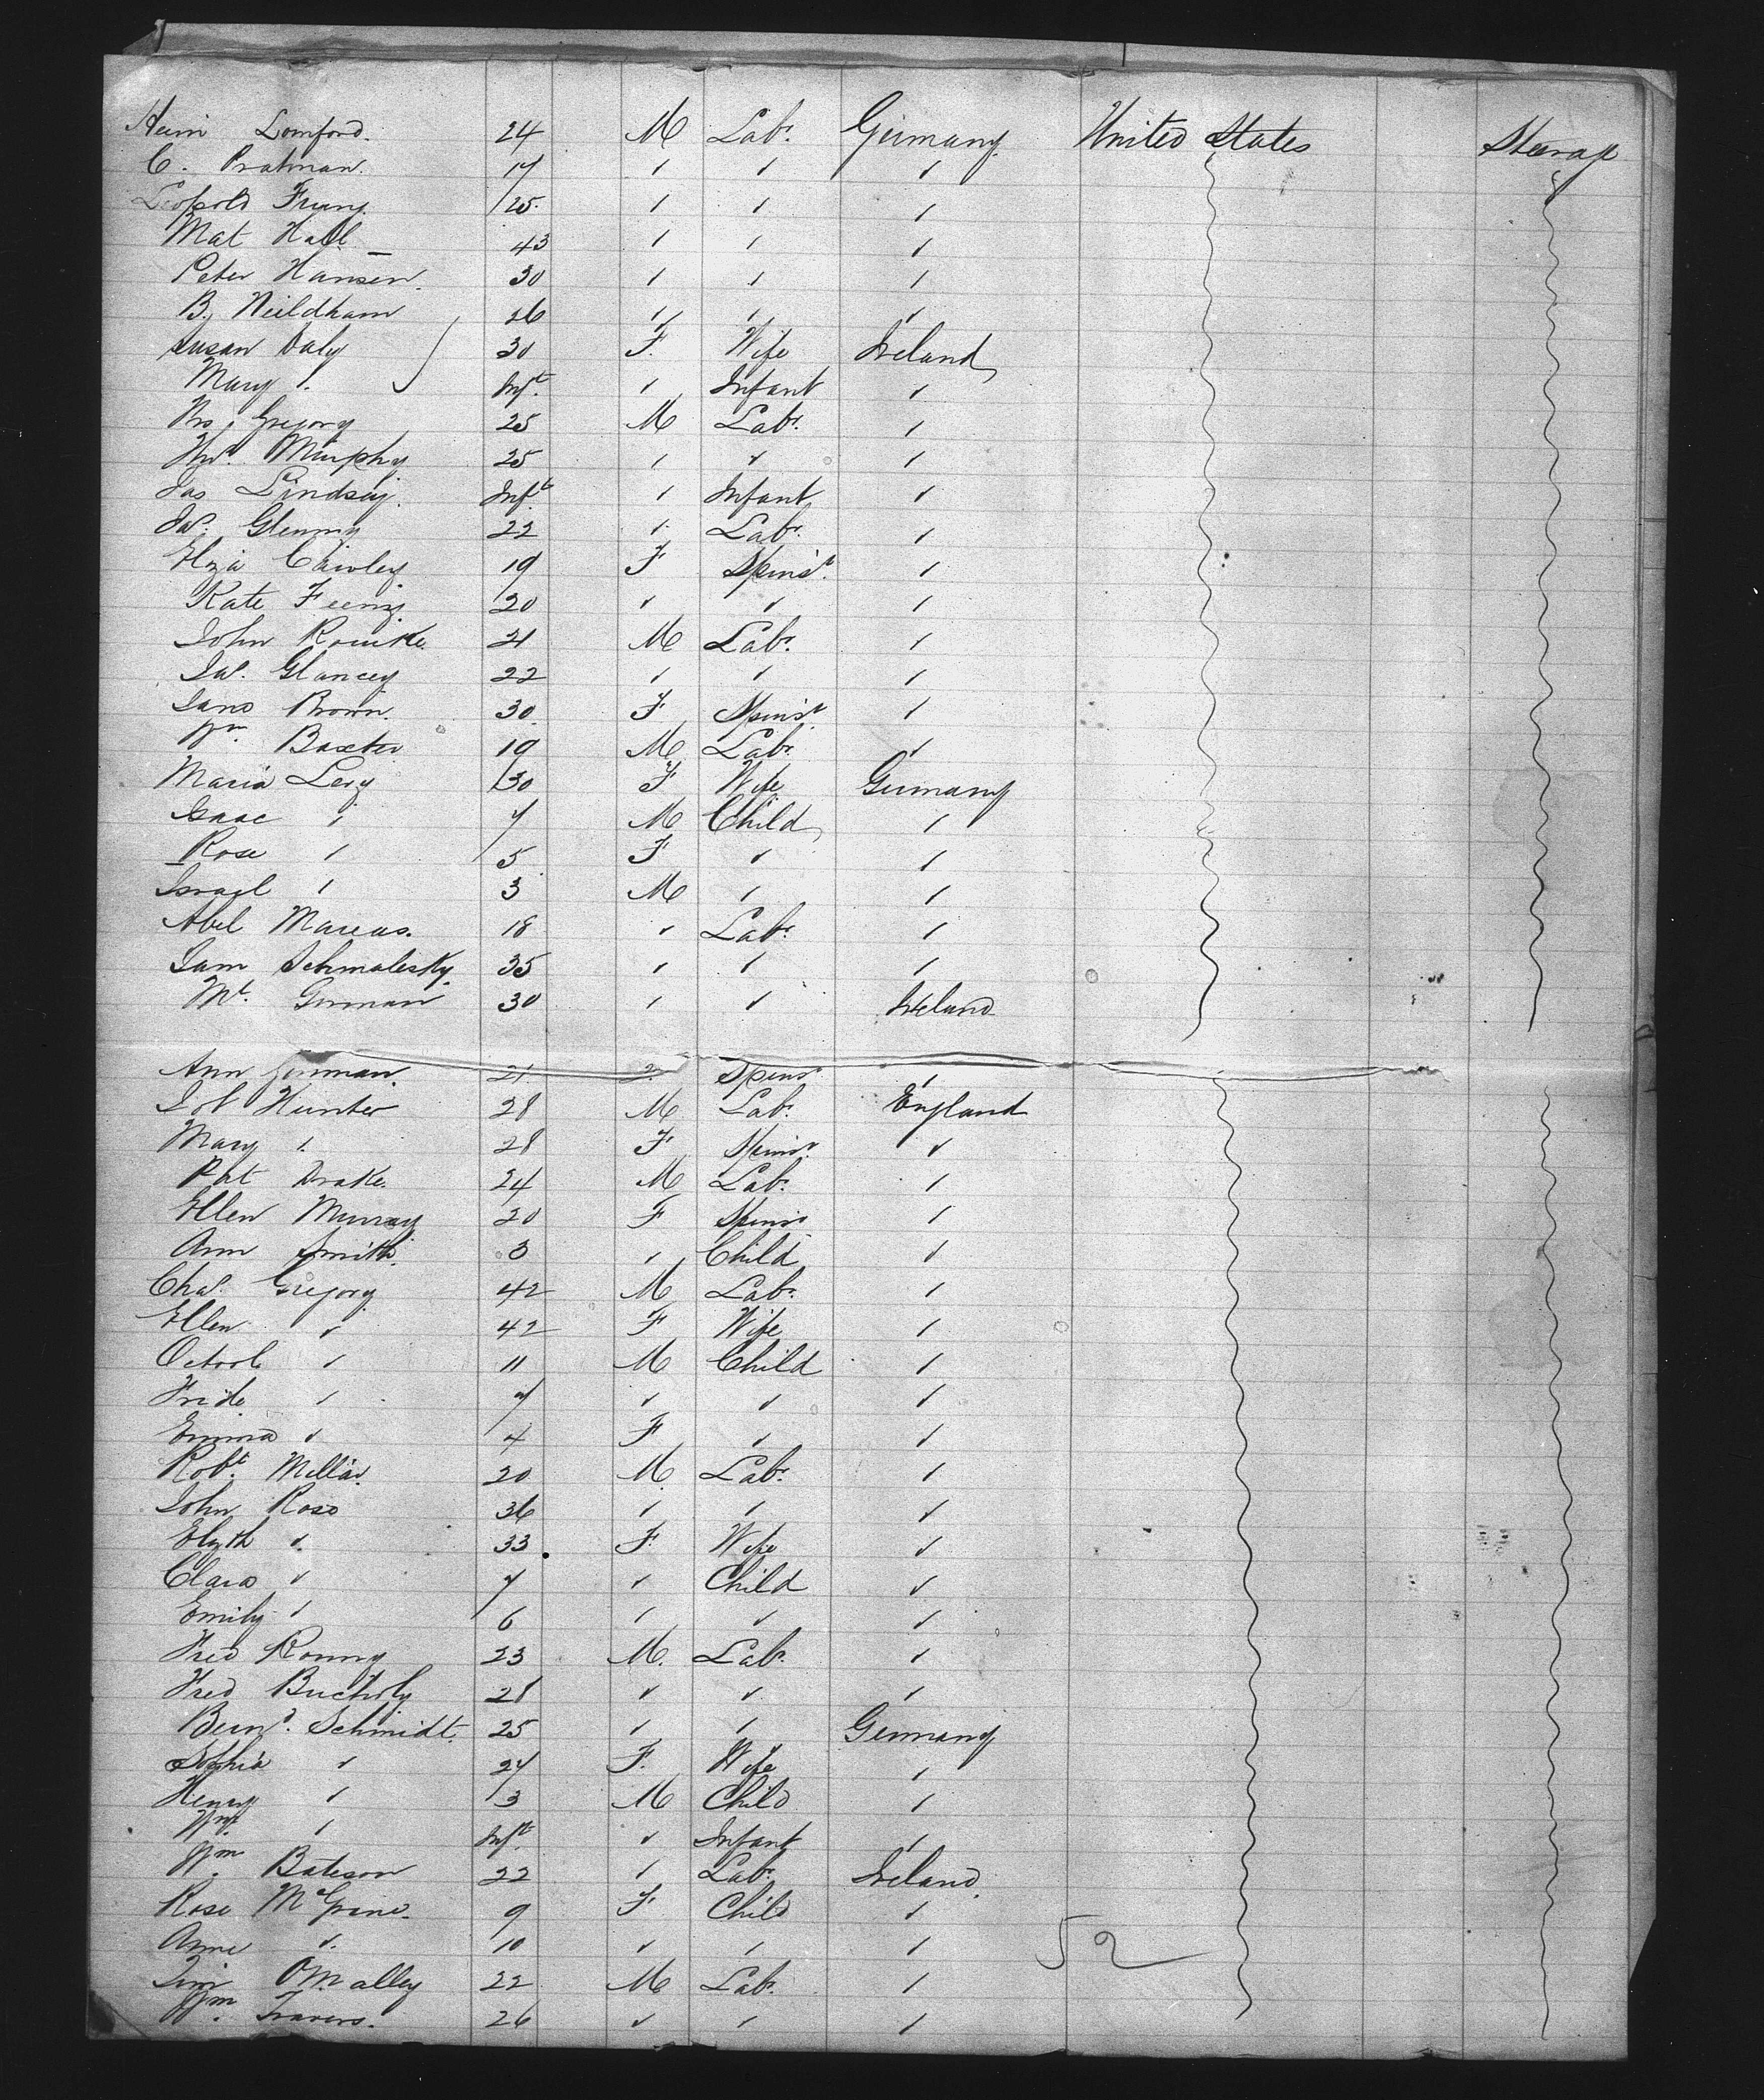 Heinr Lomford. 24 M Labr. Germany United States Steerage
C. Pratman. 17 " " "
Leopold Freung. 25. " " "
Mat Hall 43 " " "
Peter Hansen. 30 " " "
B. Neildham 26 " " "
Susan Daly 30 F. Wife Ireland
Mary ". Inft. " Infant "
Gregory 25 M Labr. "
Murphy 25 " " "
Jas Lindsay. Inft. " Infant "
Jas. Glenny 22 " Labr. "
Eliza Cawley 19 F Spinsr. "
Kate Feeny 20 " " "
John Rourke. 21 M Labr. "
Jas. Glancey 22 " " "
Jane Brown. 30. F Spinsr. "
Wm. Baxter 19 M Labr. "
Maria Levy 30 F Wife Germany
Isaac " 7 M Child "
Rose " 5 F " "
Israel " 3 M " "
Abel Marcus. 18 " Labr. "
Sam Schmalesky. 35 " " "
Mt. Gorman 30 " " Ireland
Ann Gorman. 21 Spinsr "
Job Hunter 28 M Labr. England
Mary ". 28 F Spinsr. "
Pat Drake. 24 M Labr. "
Ellen Murray 20 F Spinsr "
Ann Smith. 3 " Child "
Chas. Gregory 42 M Labr. "
Ellen " 42 F Wife "
" 11 M Child "
" 7 " " "
Emma " 4 F " "
Robt. Millar. 20 M. Labr. "
John Ross 36 " " "
Elizth ". 33. F Wife "
Clara " 7 " Child "
Emily " 6 " " "
Fred Ronny 23 M. Labr. "
Fred Bucholy 28 " " "
Bernd. Schmidt. 25 " " Germany
Sophia " 27 F. Wife "
Henry " 3 M Child "
Wm. " Inft. " Infant "
Wm. Bateson 22 " Labr. Ireland.
Rose McGrane. 9 F Child "
Anne ". 10 " " "
Tim O'Malley 22 M Labr. "
Wm. Travers. 26 " " "
52